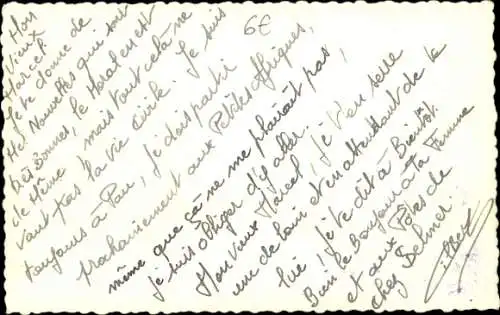 Mon
Vieux
Marcel.
Je te donne de
Mes Nouvelles qui sont
très Bonnes, le Moral en est
de Même ! mais tout celà ne
Vaut pas la vie Civile. Je suis
toujours à Pau, Je dois partir
prochainement aux Petites
même que çà ne me plairait pas,
Je suis obliger d'y aller.
Mon Vieux Marcel, Je t'en serre
une de loin et en attendant de te
lire ! Je te dit à Bientôt.
Bien le Bonjour à ta Femme
et aux Potes de
chez
6€